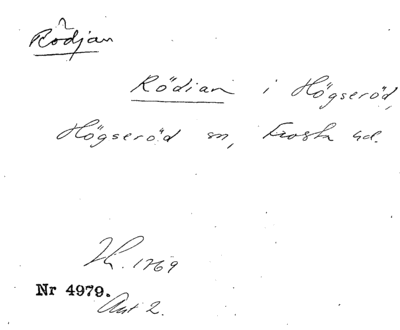 Rödjan
Rödian i Högseröd,
Högseröd sn, Frosta hd.
1769
Nr 4979.
Akt 2.